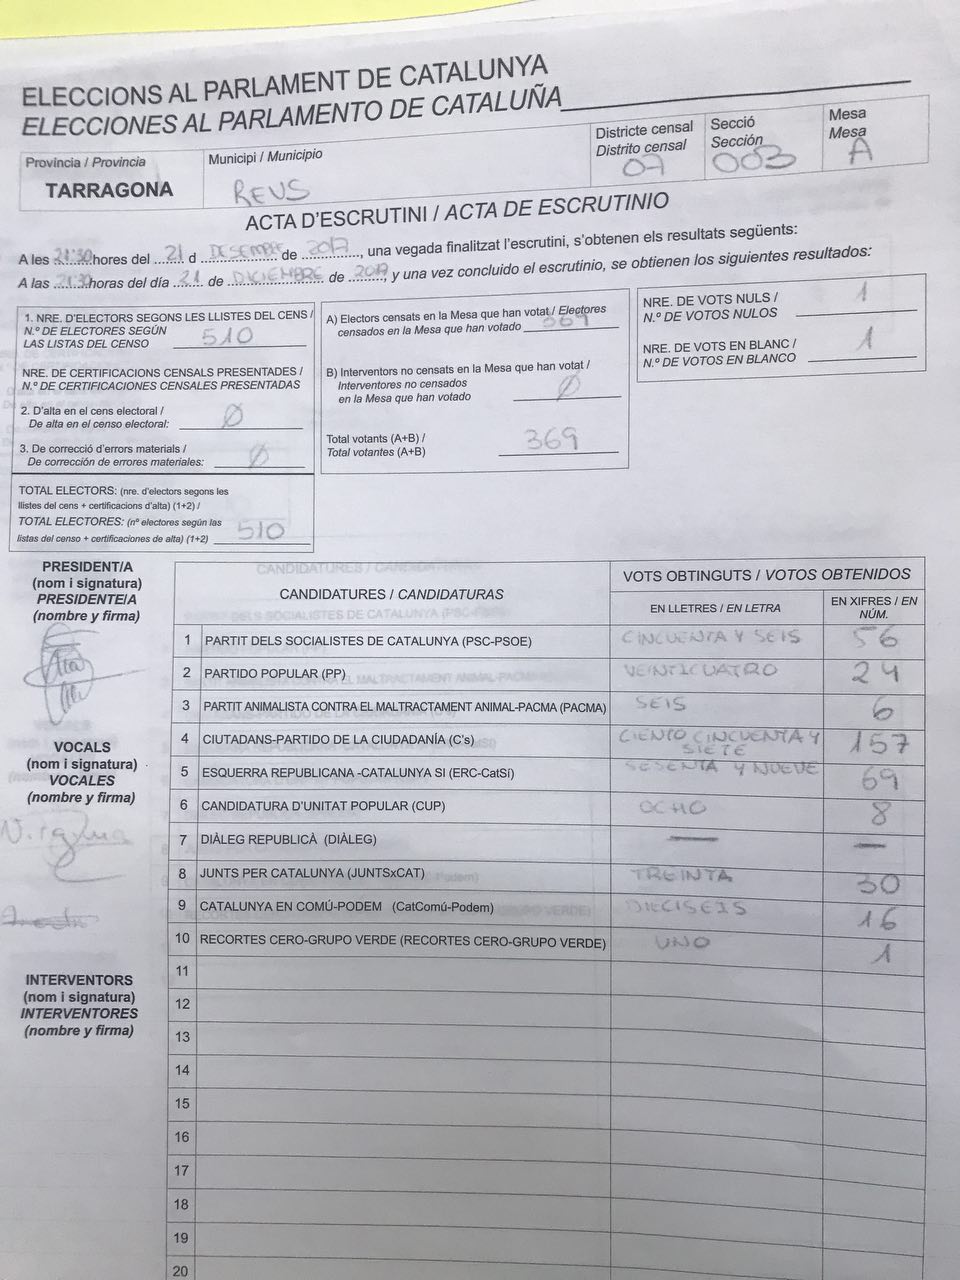 ELECCIONS AL PARLAMENT DE CATALUNYA
ELECCIONES AL PARLAMENTO DE CATALUÑA
Provincia / Provincia
TARRAGONA
Municipi / Municipio
REUS
Districte censal
Distrito censal
07
Secció
Sección
003
Mesa
Mesa
A
ACTA D'ESCRUTINI / ACTA DE ESCRUTINIO
A les 21:30 hores del 21 d DESEMBRE de 2017, una vegada finalitzat l'escrutini, s'obtenen els resultats següents:
A las 21:30 horas del día 21 de DICIEMBRE de 2017, y una vez concluido el escrutinio, se obtienen los siguientes resultados:
1. NRE. D'ELECTORS SEGONS LES LLISTES DEL CENS /
N.º DE ELECTORES SEGÚN
LAS LISTAS DEL CENSO 510
NRE. DE CERTIFICACIONS CENSALS PRESENTADES /
N.º DE CERTIFICACIONES CENSALES PRESENTADAS
2. D'alta en el cens electoral /
De alta en el censo electoral: Ø
3. De correcció d'errors materials /
De corrección de errores materiales: Ø
TOTAL ELECTORS: (nre. d'electors segons les
llistes del cens + certificacions d'alta) (1+2) /
TOTAL ELECTORES: (nº electores según las
listas del censo + certificaciones de alta) (1+2) 510
A) Electors censats en la Mesa que han votat / Electores
censados en la Mesa que han votado 369
B) Interventors no censats en la Mesa que han votat /
Interventores no censados
en la Mesa que han votado Ø
Total votants (A+B) /
Total votantes (A+B) 369
NRE. DE VOTS NULS /
N.º DE VOTOS NULOS 1
NRE. DE VOTS EN BLANC /
N.º DE VOTOS EN BLANCO 1
PRESIDENT/A
(nom i signatura)
PRESIDENTE/A
(nombre y firma)
VOCALS
(nom i signatura)
VOCALES
(nombre y firma)
INTERVENTORS
(nom i signatura)
INTERVENTORES
(nombre y firma)
CANDIDATURES / CANDIDATURAS
VOTS OBTINGUTS / VOTOS OBTENIDOS
EN LLETRES / EN LETRA
EN XIFRES / EN
NÚM.
1 PARTIT DELS SOCIALISTES DE CATALUNYA (PSC-PSOE) CINCUENTA Y SEIS 56
2 PARTIDO POPULAR (PP) VEINTICUATRO 24
3 PARTIT ANIMALISTA CONTRA EL MALTRACTAMENT ANIMAL-PACMA (PACMA) SEIS 6
4 CIUTADANS-PARTIDO DE LA CIUDADANÍA (C's) CIENTO CINCUENTA Y
SIETE 157
5 ESQUERRA REPUBLICANA -CATALUNYA SI (ERC-CatSí) SESENTA Y NUEVE 69
6 CANDIDATURA D'UNITAT POPULAR (CUP) OCHO 8
7 DIÀLEG REPUBLICÀ (DIÀLEG) — —
8 JUNTS PER CATALUNYA (JUNTSxCAT) TREINTA 30
9 CATALUNYA EN COMÚ-PODEM (CatComú-Podem) DIECISEIS 16
10 RECORTES CERO-GRUPO VERDE (RECORTES CERO-GRUPO VERDE) UNO 1
11
12
13
14
15
16
17
18
19
20